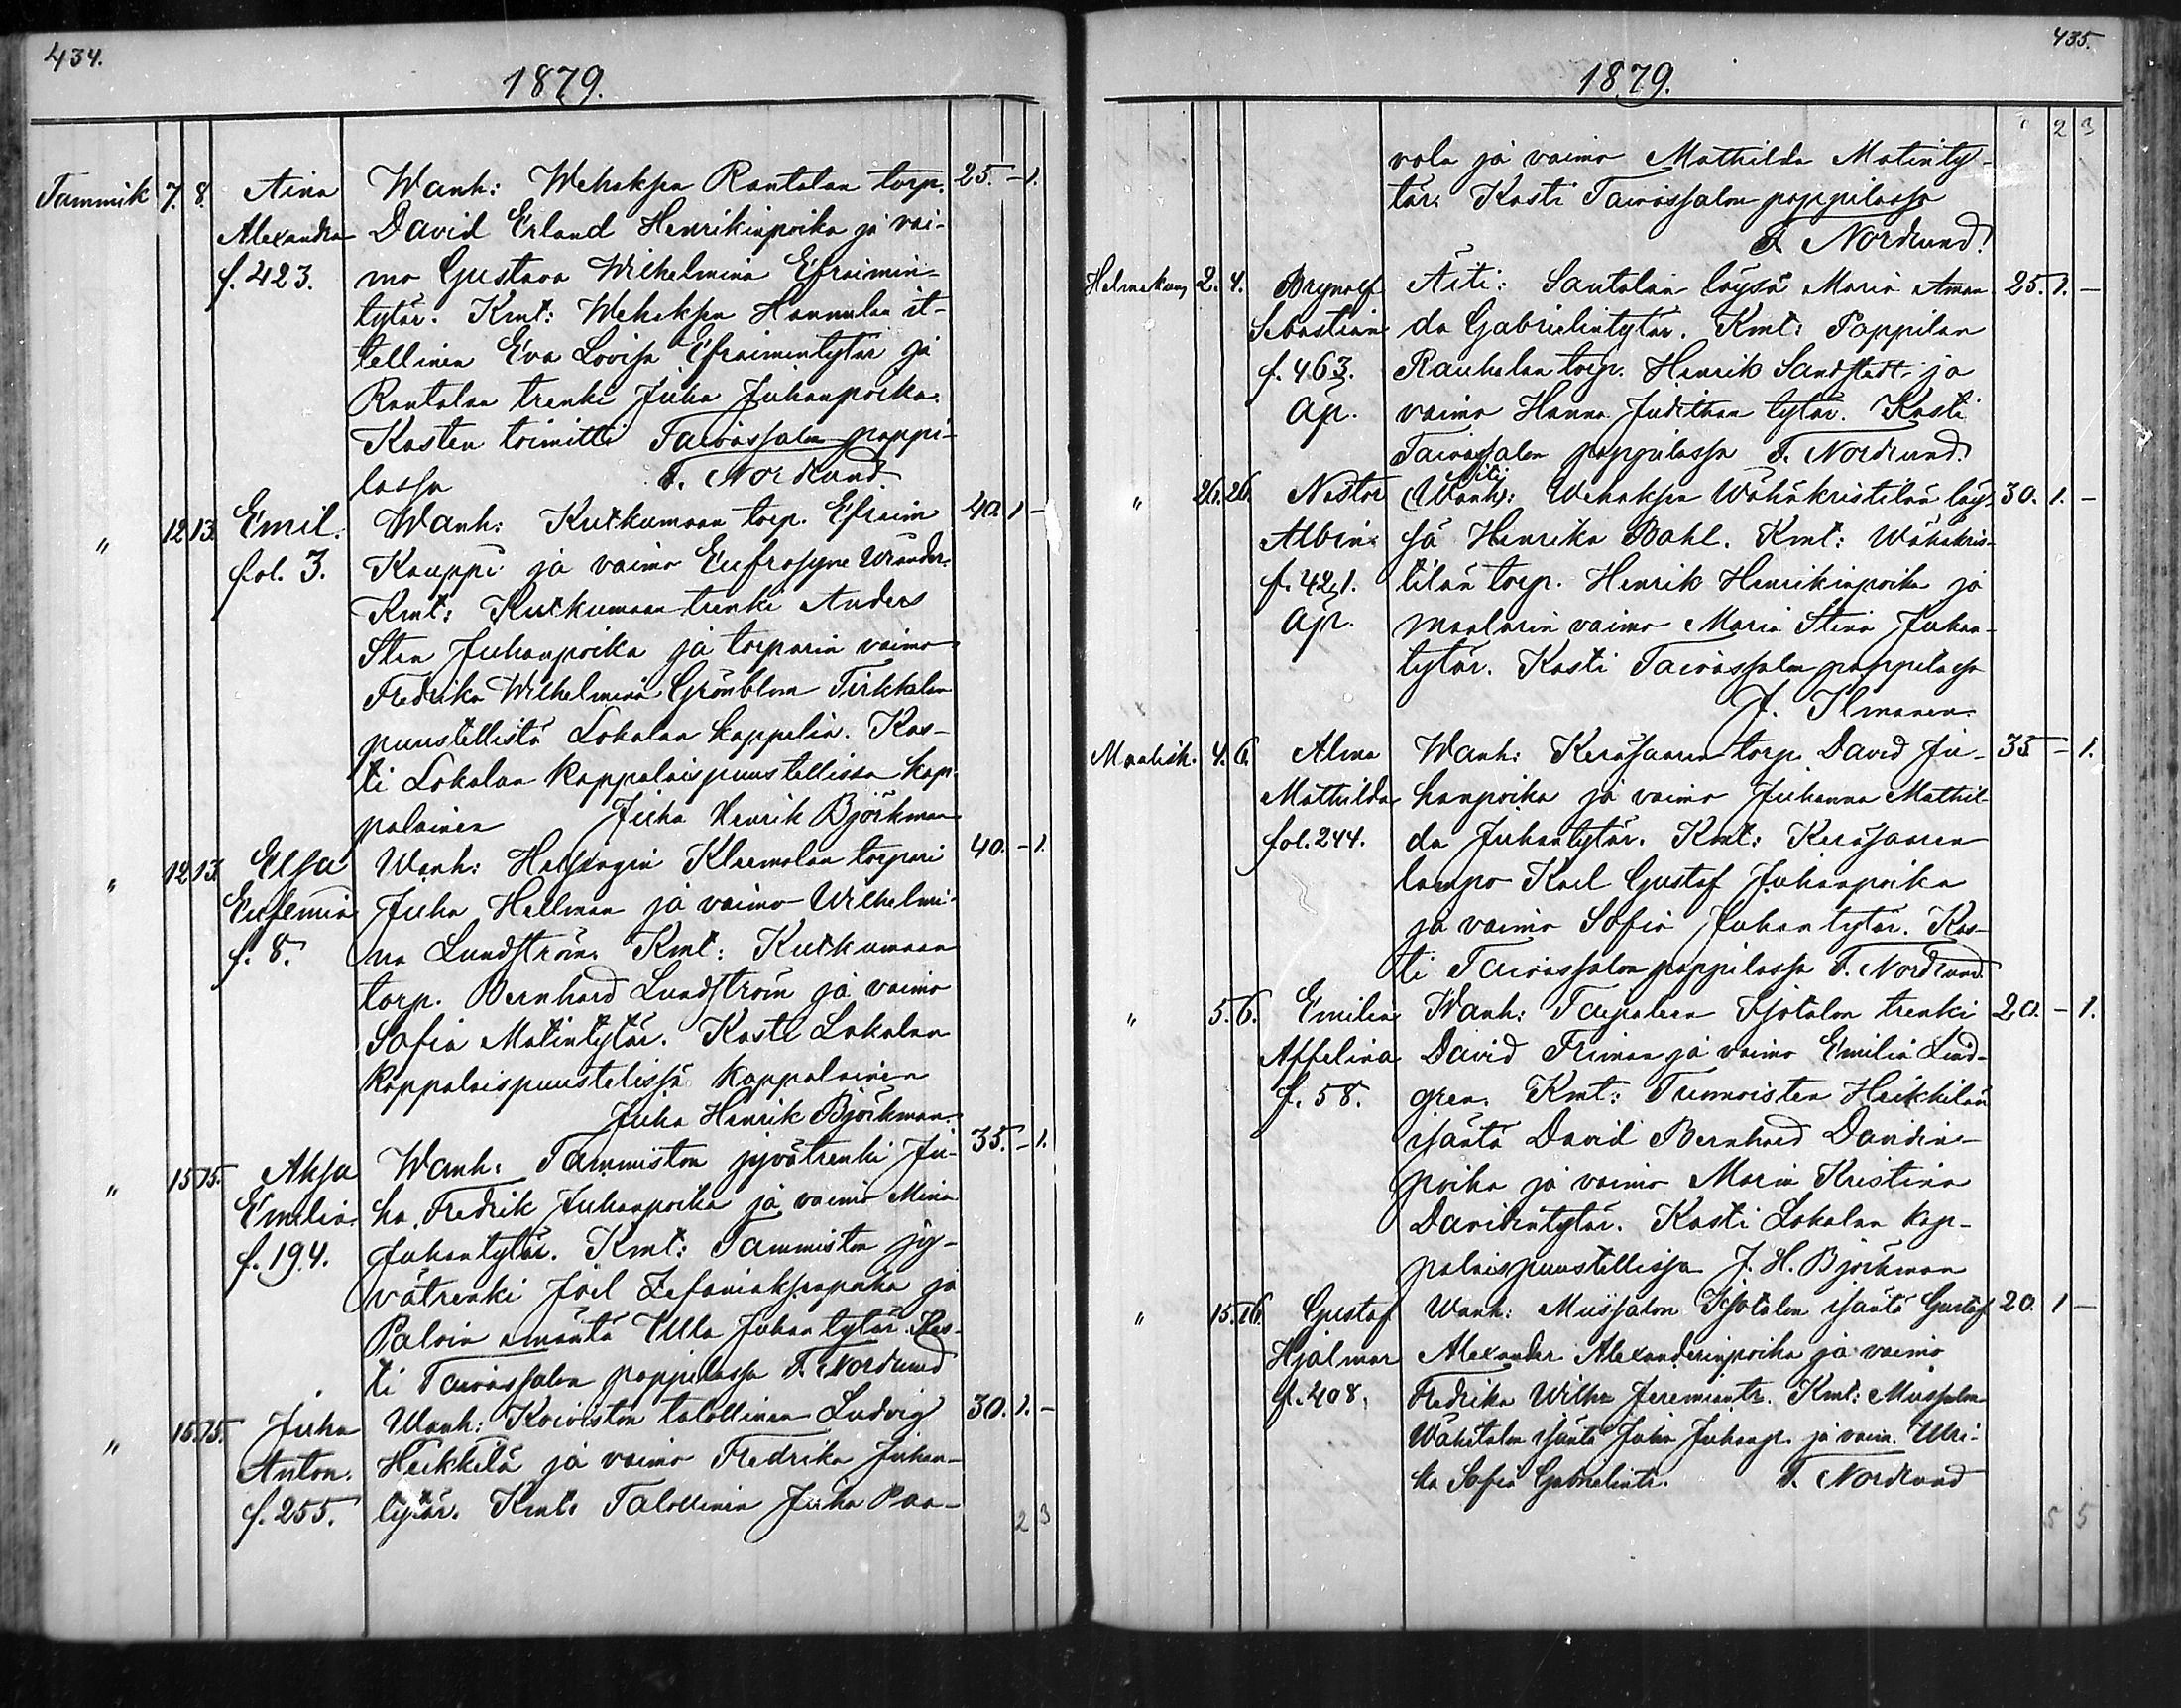 434.
1879.
Tammik 7. 8. Aina Wanh: Wehaksen Rantalan torp. 25. - 1.
Alexandra David Erland Henrikinpoika ja vai-
f. 423. mo Gustava Wilhelmina Efraimin-
tytär. Kmt: Wehaksen Hannulan it-
tellinen Eva Lovisa Efraimintytär ja
Rantalan trenki Juha Juhanpoika.
Kasten toimitti Taivassalon pappi-
lassa F. Nordlund.
" 12 13. Emil. Wanh: Kutkumaan torp. Efraim 40. 1 -
fol. 3. Kauppi ja vaimo Eufrosyne Wrander.
Kmt: Kutkumaan trenki Anders
Sten Juhanpoika ja torparin vaimo
Fredrika Wilhelmina Grönblom Tirkkalan
puustellista Lokalan kappelia. Kas-
ti Lokalan kappalaispuustellissa kap-
palainen Juha Henrik Björkman
" 12 13 Elsa Wanh: Helsingin Kleemolan torpari 40. - 1.
Eufemia Juha Hellman ja vaimo Wilhelmi-
f. 8. na Lundström. Kmt: Kutkumaan
torp. Bernhard Lundström ja vaimo
Sofia Matintytär. Kasti Lokalan
kappalaispuustelissa kappalainen
Juha Henrik Björkman.
" 15 15. Aksa Wanh: Tammiston jyvätrenki Ju- 35. - 1.
Emilia ha Fredrik Juhanpoika ja vaimo Mina
f. 194. Juhantytär. Kmt: Tammiston jy-
vätrenki Joel Zefaniaksenpoika ja
Paloin emäntä Ulla Juhantytär. Kas-
ti Taivassalon pappilassa F. Nordlund
" 15 15. Juha Wanh: Koiviston talollinen Ludvig 30. 1. -
Anton. Heikkilä ja vaimo Fredrika Juhan-
f. 255. tytär. Kmt: Talollinen Juha Paa-
2 3
435.
1879.
2 3
vola ja vaimo Mathilda Matinty-
tär. Kasti Taivassalon pappilassa
F. Nordlund.
Helmikuu 2. 4. Brynolf Äiti: Santalan löysä Maria Aman- 25. 1. -
Sebastian da Gabrielintytär. Kmt: Pappilan
f. 463. Rauhalan torp. Henrik Sandstedt ja
Äp. vaimo Hanna Judithan tytär. Kasti
Taivassalon pappilassa F. Nordlund.
Äiti
" 26. 26. Nestor (Wanh): Wehaksen Wähäkristilän löy- 30. 1. -
Albin. sä Henrika Dahl. Kmt: Wähäkris-
f. 421. tilän torp. Henrik Henrikinpoika ja
Äp. maalarin vaimo Maria Stina Juhan-
tytär. Kasti Taivassalon pappilassa
J. Ilmanen.
Maalisk. 4. 6. Alma Wanh: Keräsaaren torp. David Ju- 35 - 1.
Mathilda hanpoika ja vaimo Juhanna Mathil-
fol. 244. da Juhantytär. Kmt: Keräsaaren
lampo Karl Gustaf Juhanpoika
ja vaimo Sofia Juhantytär. Kas-
ti Taivassalon pappilassa F. Nordlund.
" 5. 6. Emilia Wanh: Taipaleen Isotalon trenki 20. - 1.
Affelina David Friman ja vaimo Emilia Lind-
f. 58. gren. Kmt: Tunnoisten Heikkilän
isäntä David Bernhard Davidin-
poika ja vaimo Maria Kristina
Davidintytär. Kasti Lokalan kap-
palaispuustellissa J. H. Björkman
" 15. 16. Gustaf Wanh: Mussalon Isotalon isäntä Gustaf 20. 1 -
Hjalmar Alexander Alexanderinpoika ja vaimo
f. 408. Fredrika Wilhe Jeremiantr. Kmt: Mussalon
Wähätalon isäntä Juha Juhanp. ja vaim. Ulri-
ka Sofia Gabrielintr. F. Nordlund
5 5